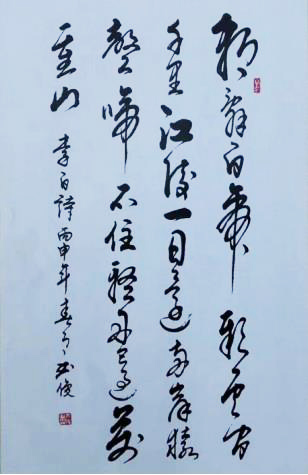 朝辭白帝彩雲間
千里江陵一日還兩岸猿
聲啼不住輕舟已過萬
重山
李白詩丙申年春月俊